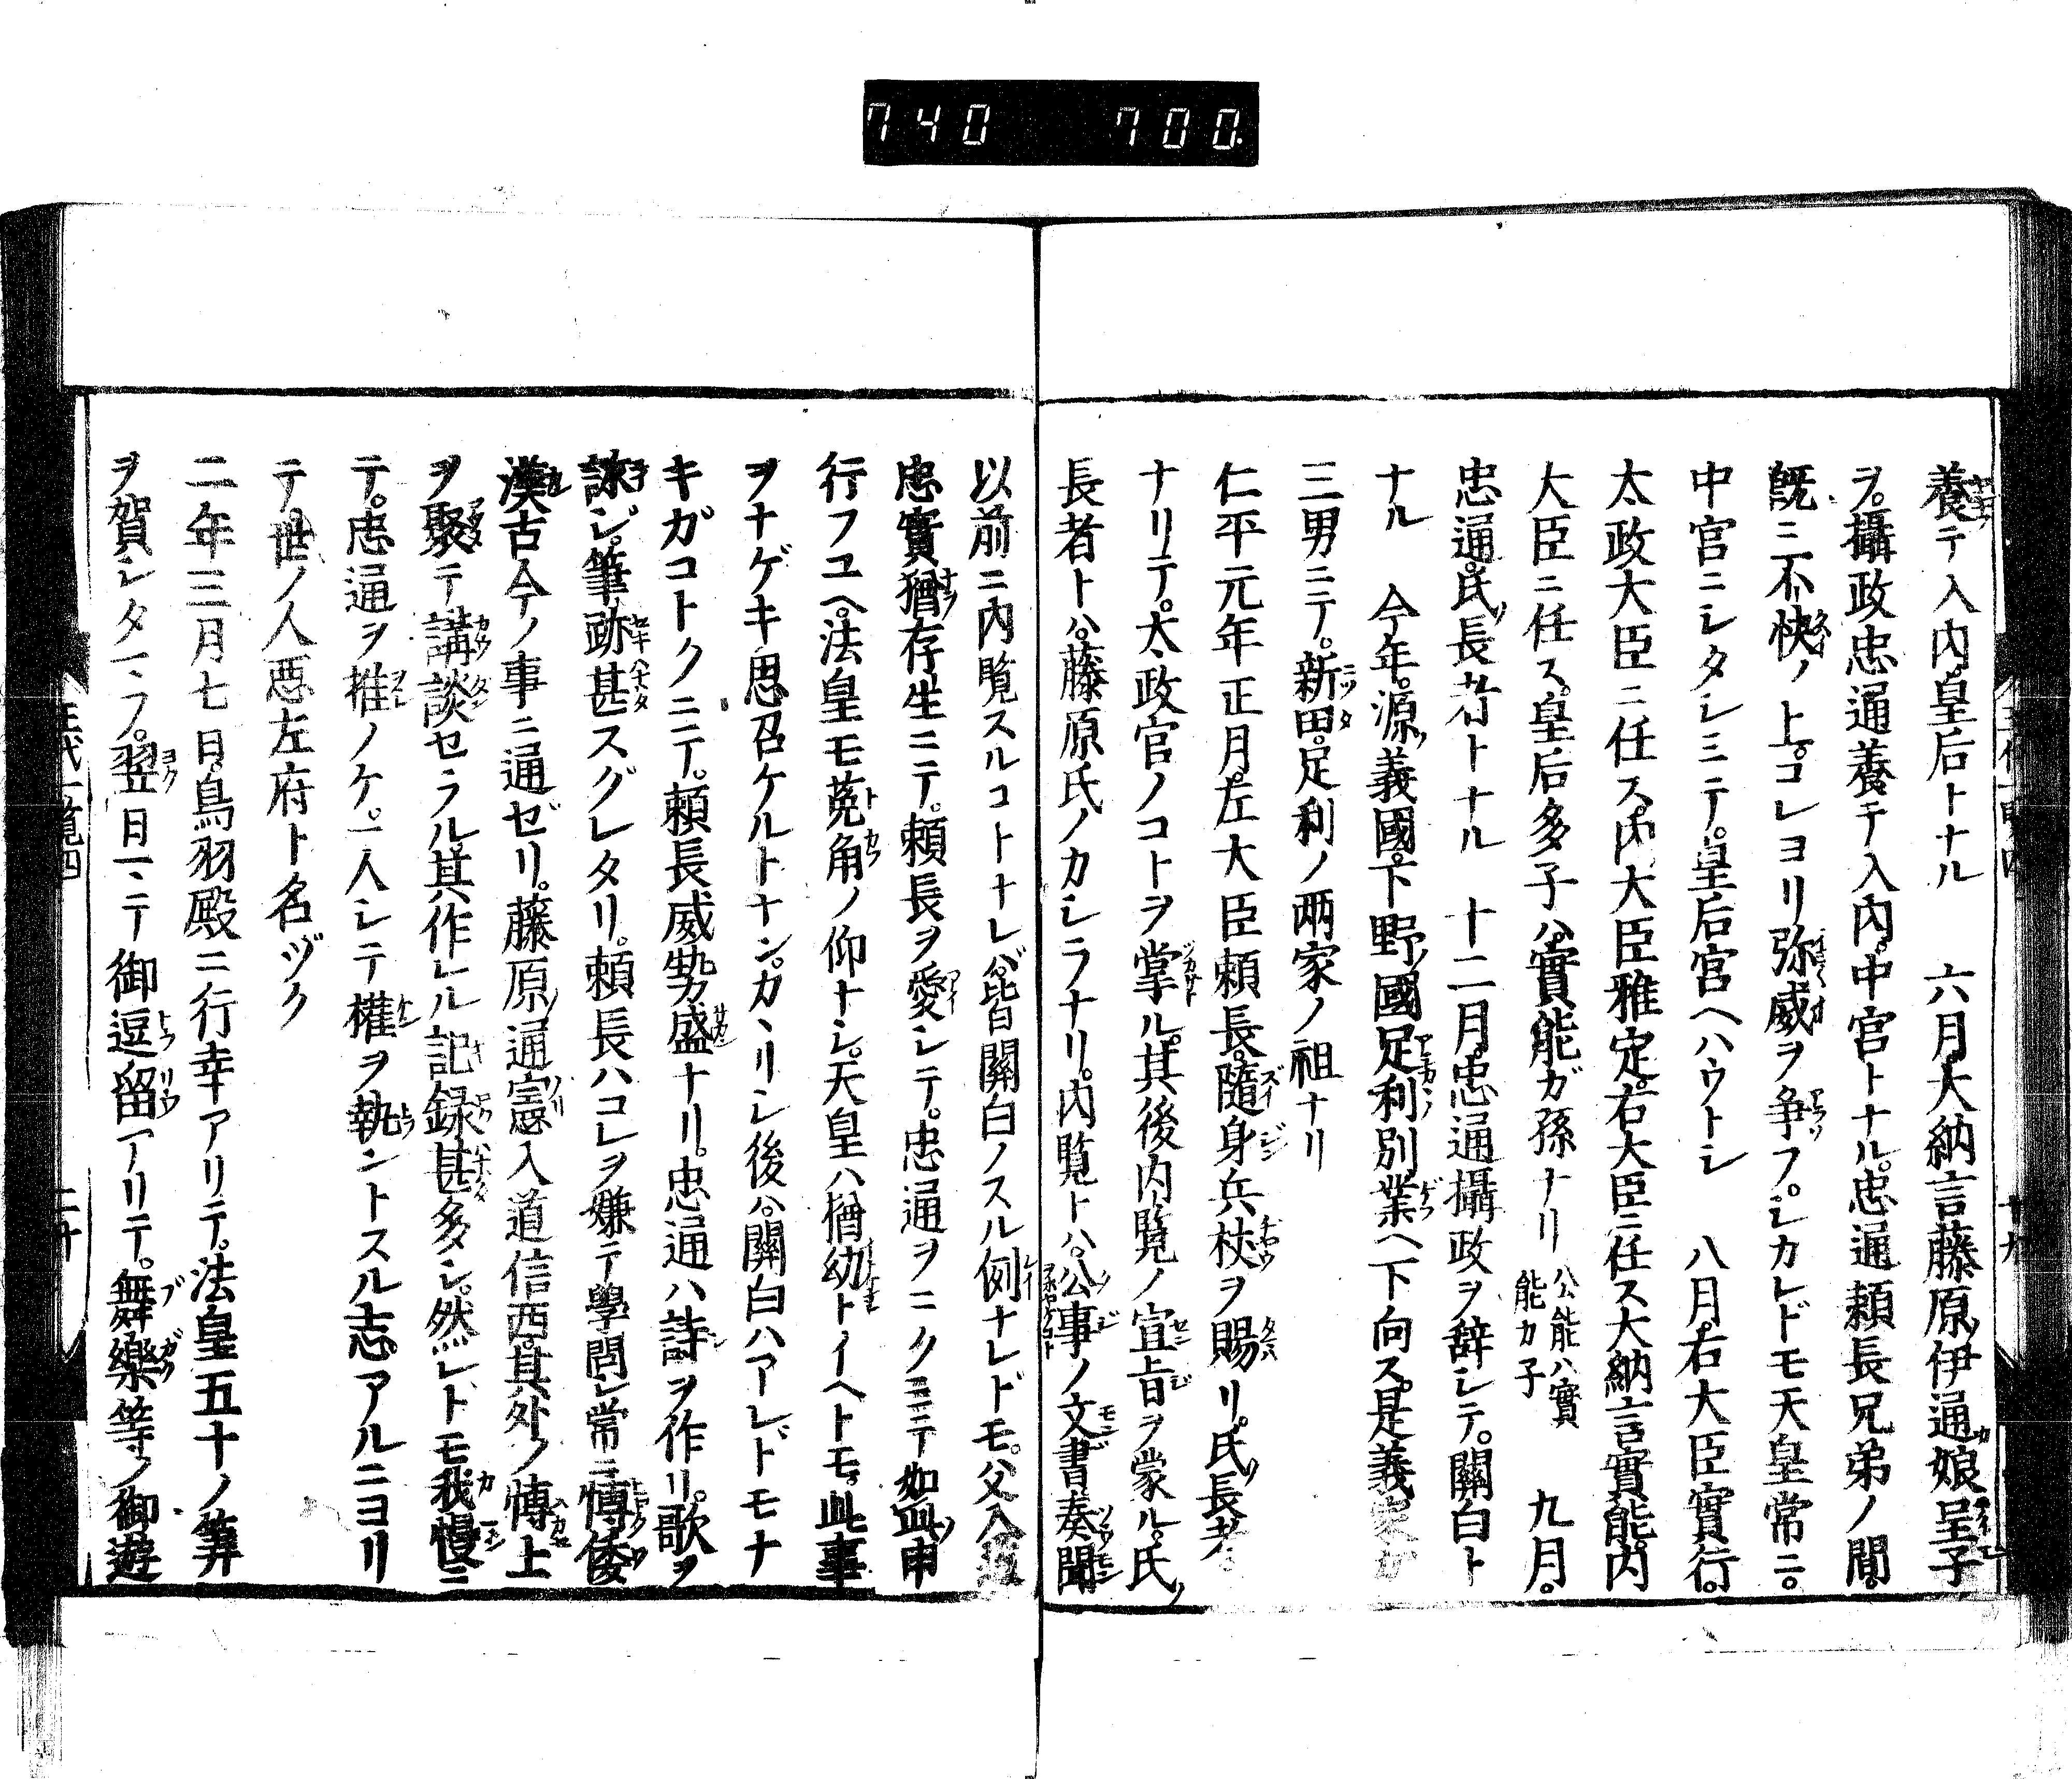 740 700
養テ入内。皇后トナル 六月。大納言藤原伊通カ娘呈子
ヲ。攝政忠通養テ入内。中宮トナル。忠通頼長兄弟ノ間。
既ニ不快ノ上。コレヨリ弥威ヲ争フ。シカレドモ天皇常ニ。
中宮ニシタシミテ。皇后宮ヘハウトシ 八月。右大臣實行。
太政大臣ニ任ス。内大臣雅定。右大臣ニ任ス大納言實能。内
大臣ニ任ス。皇后多子ハ。實能ガ孫ナリ 公能ハ實能カ子 九月。
忠通。氏長者トナル 十二月。忠通攝政ヲ辞シテ。關白ト
ナル 今年。源義國。下野國足利別業ヘ下向ス。是義家カ
三男ニテ。新田。足利ノ兩家ノ祖ナリ
仁平元年正月。左大臣頼長。隨身兵杖ヲ賜リ。氏長者
ナリテ。太政官ノコトヲ掌ル。其後内覽ノ宣旨ヲ蒙ル。氏
長者トハ。藤原氏ノカシラナリ。内覽トハ。公事ノ文書奏聞
以前ニ内覽スルコトナレバ。皆關白ノスル例ナレドモ。父入道
忠實猶存生ニテ。頼長ヲ愛シテ。忠通ヲニクミテ如此申
行フユヘ。法皇モ菟角ノ仰ナシ。天皇ハ猶幼トイヘトモ。此事
ヲナゲキ思召ケルトナン。カヽリシ後ハ。關白ハアレドモナ
キガコトクニテ。頼長威勢盛ナリ。忠通ハ詩ヲ作リ。歌ヲ
詠シ。筆跡甚スグレタリ。頼長ハコレヲ嫌テ學問シ常ニ博倭
漢古今ノ事ニ通ゼリ。藤原通憲入道信西。其外ノ博士
ヲ聚テ講談セラル。其作レル記録甚多シ。然レトモ我慢ニ
テ。忠通ヲ推ノケ。一人シテ權ヲ執ントスル志。アルニヨリ
テ。世ノ人惡左府ト名ヅク
二年三月七日。鳥羽殿ニ行幸アリテ。法皇五十ノ筭
ヲ賀シタマフ。翌日マテ御逗留アリテ。舞樂等ノ御遊